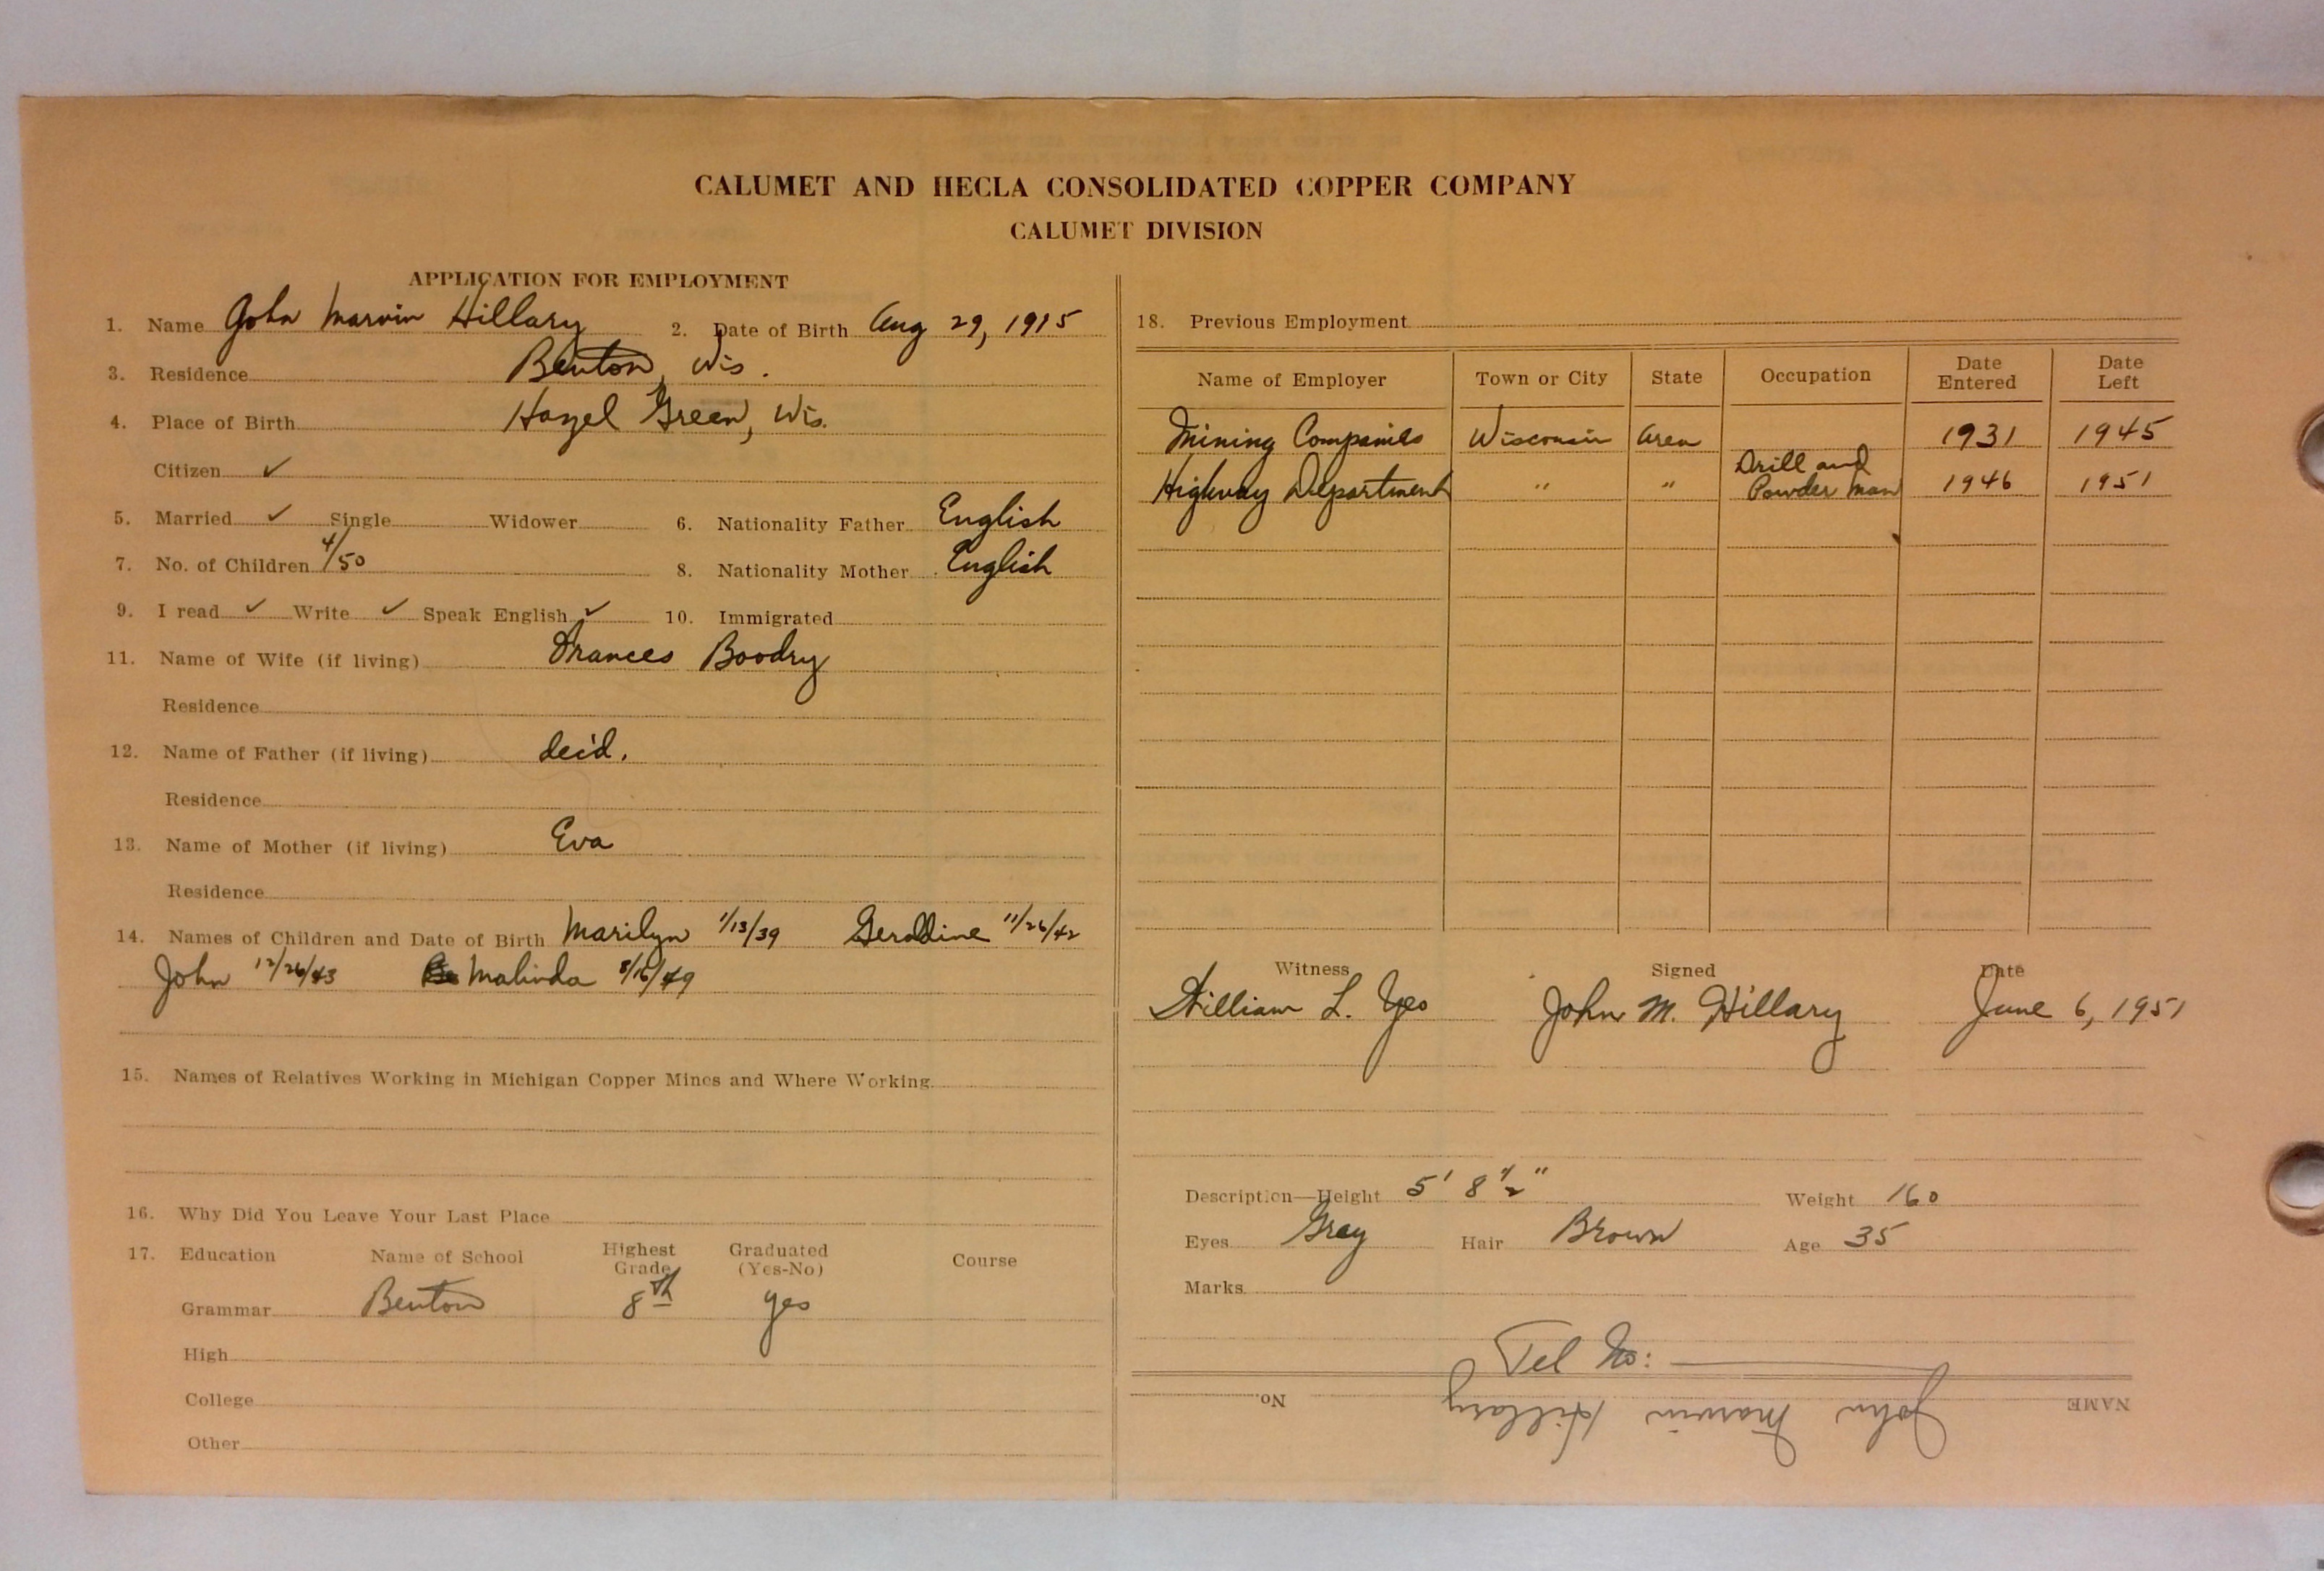 CALUMET AND HECLA CONSOLIDATED COPPER COMPANY
CALUMET DIVISION
APPLICATION FOR EMPLOYMENT
1. Name John Marvin Hillary 2. Date of Birth Aug 29, 1915
3. Residence Benton, Wis.
4. Place of Birth Hazel Green, Wis.
Citizen ✓
5. Married ✓ Single Widower 6. Nationality Father English
7. No. of Children 4/50 8. Nationality Mother English
9. I read ✓ Write ✓ Speak English ✓ 10. Immigrated
11. Name of Wife (if living) Frances Boodry
Residence
12. Name of Father (if living) dec'd.
Residence
13. Name of Mother (if living) Eva
Residence
14. Names of Children and Date of Birth Marilyn 1/13/39 Geraldine 11/26/42
John 12/26/43 Malinda 8/16/49
15. Names of Relatives Working in Michigan Copper Mines and Where Working
16. Why Did You Leave Your Last Place
17. Education Name of School Highest Grade Graduated (Yes-No) Course
Grammar Benton 8th yes
High
College
Other
18. Previous Employment
Name of Employer Town or City State Occupation Date Entered Date Left
Mining Companies Wisconsin Area 1931 1945
Highway Department " " Drill and Powder Man 1946 1951
Witness Signed Date
William L. Yeo John M. Hillary June 6, 1951
Description—Height 5' 8 1/2" Weight 160
Eyes Gray Hair Brown Age 35
Marks
Tel No:
NAME John Marvin Hillary No.